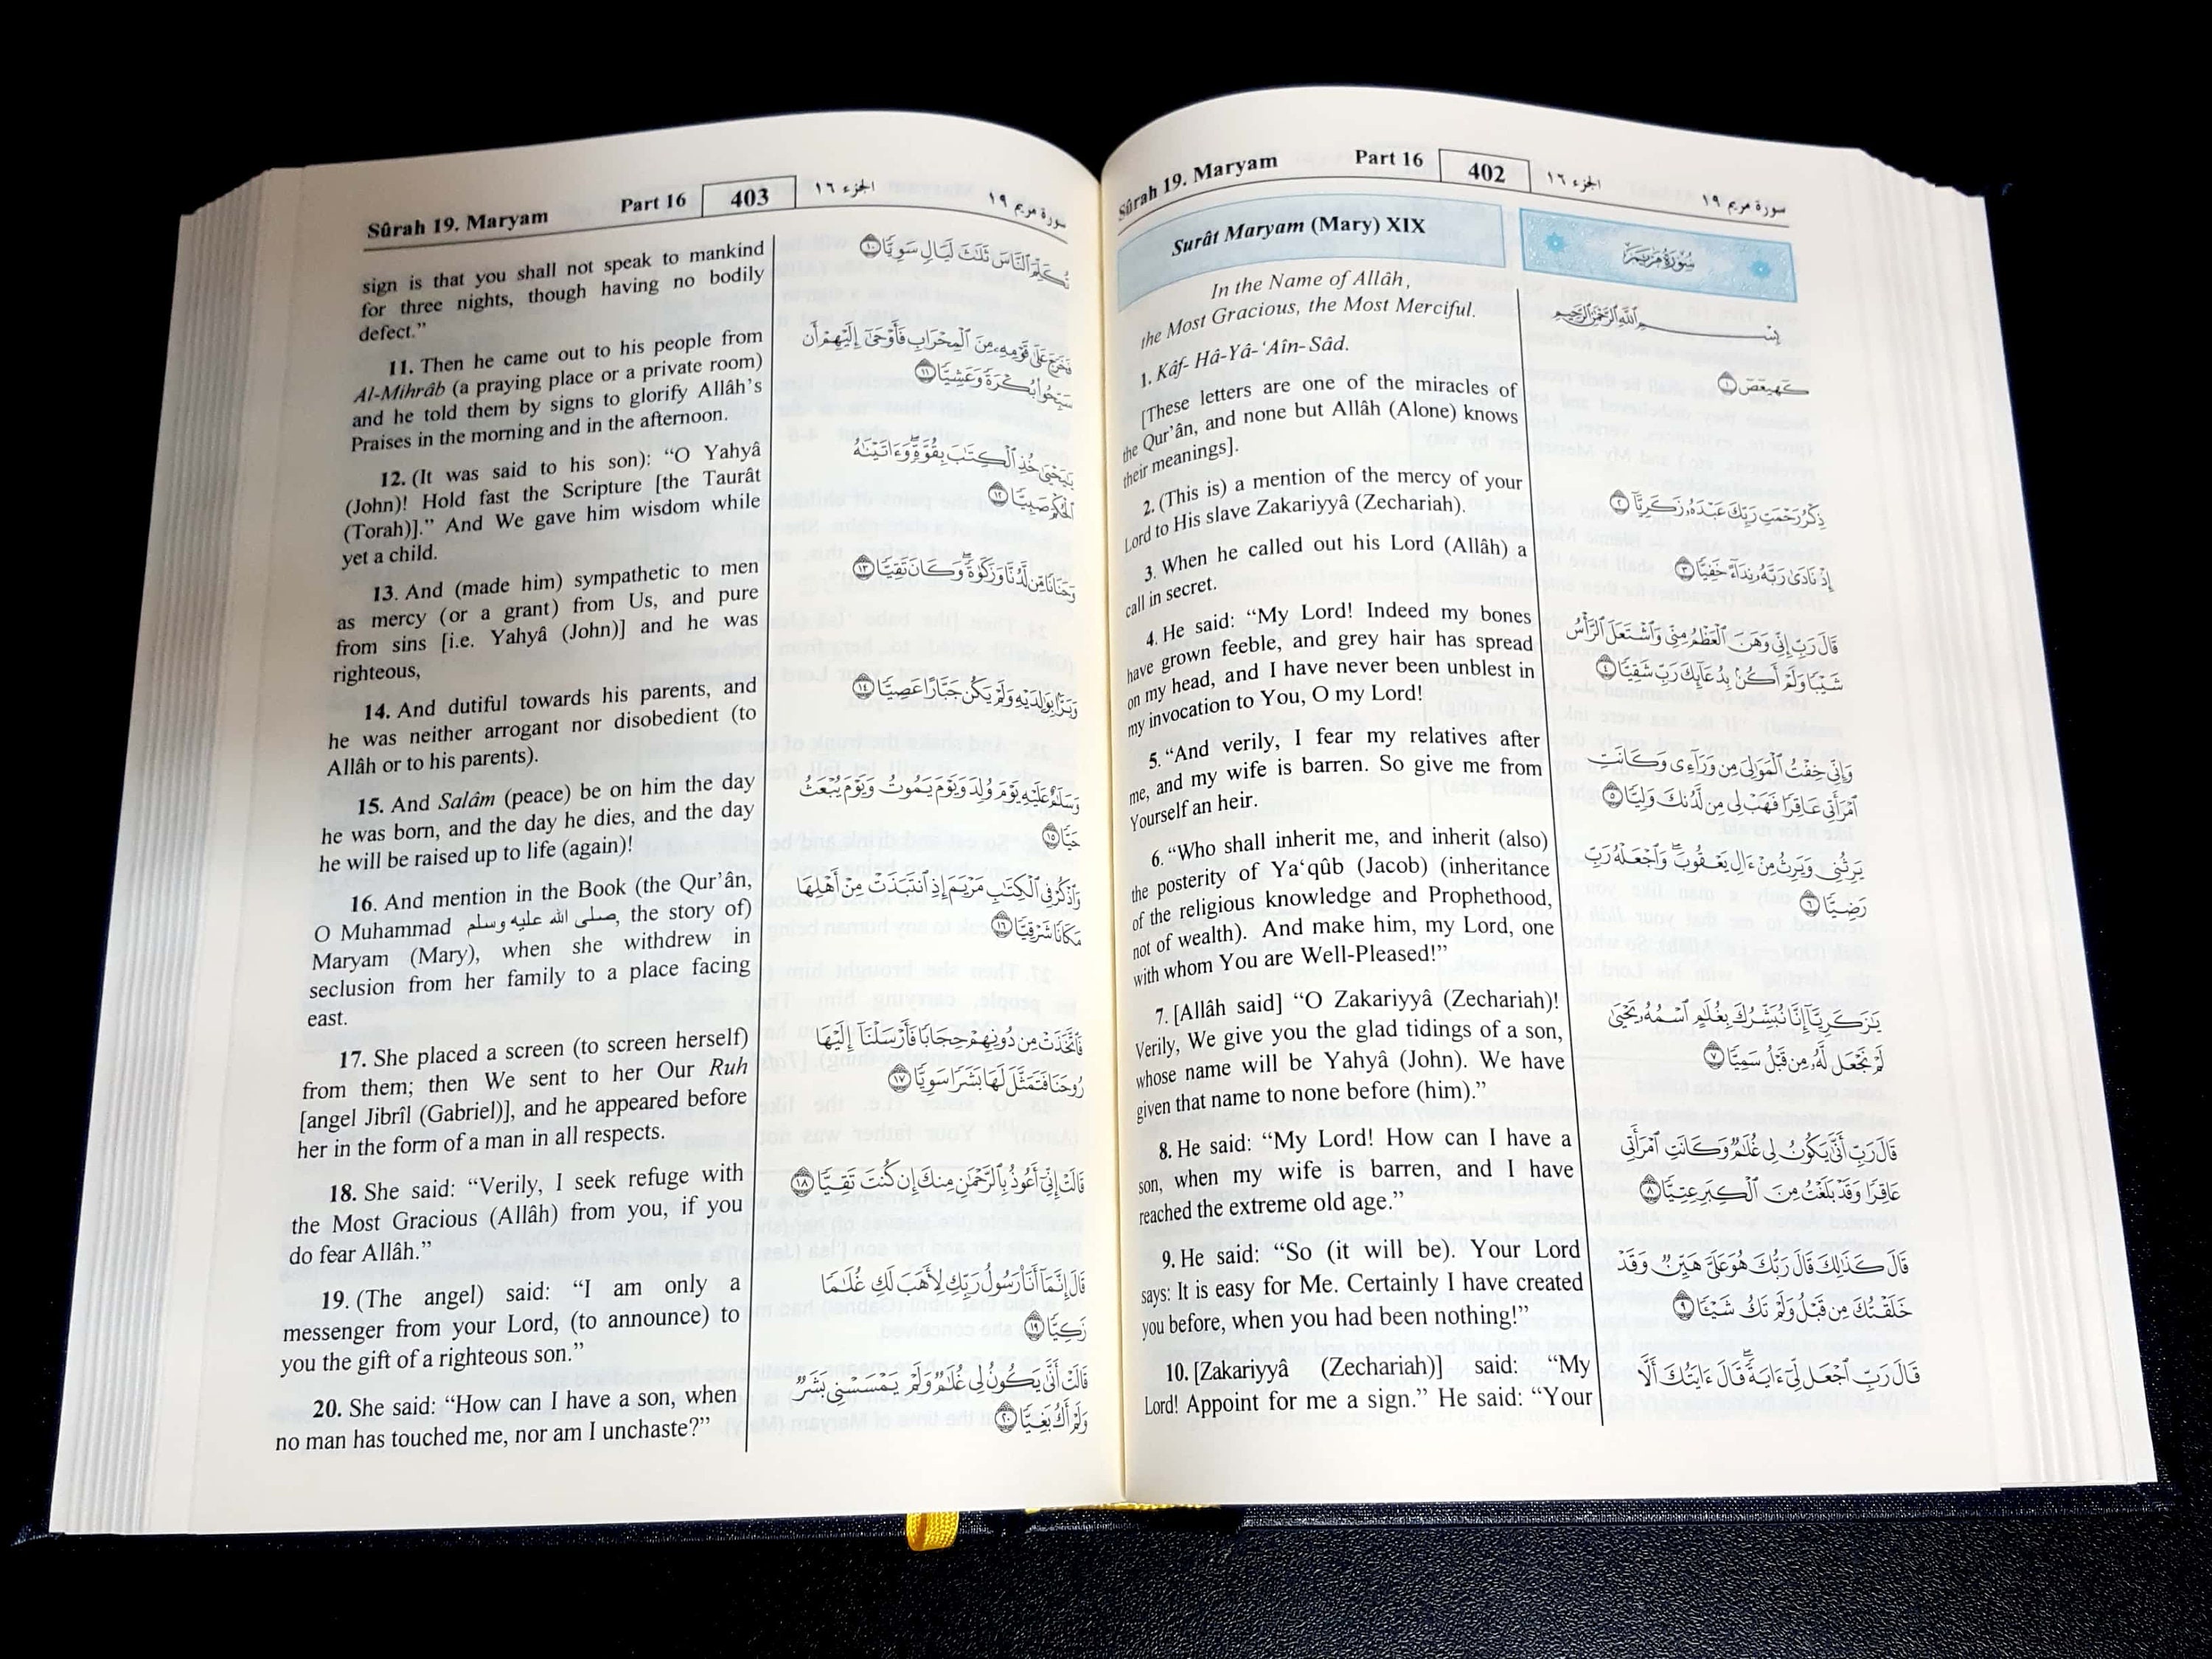 Sûrah 19. Maryam Part 16 402 الجزء ١٦ سورة مريم ١٩
Surât Maryam (Mary) XIX
سُورَةُ مَرْيَمَ
In the Name of Allâh,
the Most Gracious, the Most Merciful.
بِسْمِ اللَّهِ الرَّحْمَٰنِ الرَّحِيمِ
1. Kâf- Hâ-Yâ-‘Aîn-Sâd.
[These letters are one of the miracles of
the Qur’ân, and none but Allâh (Alone) knows
their meanings].
كٓهيعٓصٓ ١
2. (This is) a mention of the mercy of your
Lord to His slave Zakariyyâ (Zechariah).
ذِكْرُ رَحْمَتِ رَبِّكَ عَبْدَهُۥ زَكَرِيَّآ ٢
3. When he called out his Lord (Allâh) a
call in secret.
إِذْ نَادَىٰ رَبَّهُۥ نِدَآءً خَفِيًّا ٣
4. He said: “My Lord! Indeed my bones
have grown feeble, and grey hair has spread
on my head, and I have never been unblest in
my invocation to You, O my Lord!
قَالَ رَبِّ إِنِّى وَهَنَ ٱلْعَظْمُ مِنِّى وَٱشْتَعَلَ ٱلرَّأْسُ
شَيْبًا وَلَمْ أَكُنۢ بِدُعَآئِكَ رَبِّ شَقِيًّا ٤
5. “And verily, I fear my relatives after
me, and my wife is barren. So give me from
Yourself an heir.
وَإِنِّى خِفْتُ ٱلْمَوَٰلِىَ مِن وَرَآءِى وَكَانَتِ
ٱمْرَأَتِى عَاقِرًا فَهَبْ لِى مِن لَّدُنكَ وَلِيًّا ٥
6. “Who shall inherit me, and inherit (also)
the posterity of Ya‘qûb (Jacob) (inheritance
of the religious knowledge and Prophethood,
not of wealth). And make him, my Lord, one
with whom You are Well-Pleased!”
يَرِثُنِى وَيَرِثُ مِنْ ءَالِ يَعْقُوبَ ۖ وَٱجْعَلْهُ رَبِّ
رَضِيًّا ٦
7. [Allâh said] “O Zakariyyâ (Zechariah)!
Verily, We give you the glad tidings of a son,
whose name will be Yahyâ (John). We have
given that name to none before (him).”
يَٰزَكَرِيَّآ إِنَّا نُبَشِّرُكَ بِغُلَٰمٍ ٱسْمُهُۥ يَحْيَىٰ
لَمْ نَجْعَل لَّهُۥ مِن قَبْلُ سَمِيًّا ٧
8. He said: “My Lord! How can I have a
son, when my wife is barren, and I have
reached the extreme old age.”
قَالَ رَبِّ أَنَّىٰ يَكُونُ لِى غُلَٰمٌ وَكَانَتِ ٱمْرَأَتِى
عَاقِرًا وَقَدْ بَلَغْتُ مِنَ ٱلْكِبَرِ عِتِيًّا ٨
9. He said: “So (it will be). Your Lord
says: It is easy for Me. Certainly I have created
you before, when you had been nothing!”
قَالَ كَذَٰلِكَ قَالَ رَبُّكَ هُوَ عَلَىَّ هَيِّنٌ وَقَدْ
خَلَقْتُكَ مِن قَبْلُ وَلَمْ تَكُ شَيْـًٔا ٩
10. [Zakariyyâ (Zechariah)] said: “My
Lord! Appoint for me a sign.” He said: “Your
قَالَ رَبِّ ٱجْعَل لِّىٓ ءَايَةً ۚ قَالَ ءَايَتُكَ أَلَّا
Sûrah 19. Maryam Part 16 403 الجزء ١٦ سورة مريم ١٩
sign is that you shall not speak to mankind
for three nights, though having no bodily
defect.”
تُكَلِّمَ ٱلنَّاسَ ثَلَٰثَ لَيَالٍ سَوِيًّا ١٠
11. Then he came out to his people from
Al-Mihrâb (a praying place or a private room)
and he told them by signs to glorify Allâh’s
Praises in the morning and in the afternoon.
فَخَرَجَ عَلَىٰ قَوْمِهِۦ مِنَ ٱلْمِحْرَابِ فَأَوْحَىٰٓ إِلَيْهِمْ أَن
سَبِّحُوا۟ بُكْرَةً وَعَشِيًّا ١١
12. (It was said to his son): “O Yahyâ
(John)! Hold fast the Scripture [the Taurât
(Torah)].” And We gave him wisdom while
yet a child.
يَٰيَحْيَىٰ خُذِ ٱلْكِتَٰبَ بِقُوَّةٍ ۖ وَءَاتَيْنَٰهُ
ٱلْحُكْمَ صَبِيًّا ١٢
13. And (made him) sympathetic to men
as mercy (or a grant) from Us, and pure
from sins [i.e. Yahyâ (John)] and he was
righteous,
وَحَنَانًا مِّن لَّدُنَّا وَزَكَوٰةً ۖ وَكَانَ تَقِيًّا ١٣
14. And dutiful towards his parents, and
he was neither arrogant nor disobedient (to
Allâh or to his parents).
وَبَرًّۢا بِوَٰلِدَيْهِ وَلَمْ يَكُن جَبَّارًا عَصِيًّا ١٤
15. And Salâm (peace) be on him the day
he was born, and the day he dies, and the day
he will be raised up to life (again)!
وَسَلَٰمٌ عَلَيْهِ يَوْمَ وُلِدَ وَيَوْمَ يَمُوتُ وَيَوْمَ يُبْعَثُ
حَيًّا ١٥
16. And mention in the Book (the Qur’ân,
O Muhammad صلى الله عليه وسلم, the story of)
Maryam (Mary), when she withdrew in
seclusion from her family to a place facing
east.
وَٱذْكُرْ فِى ٱلْكِتَٰبِ مَرْيَمَ إِذِ ٱنتَبَذَتْ مِنْ أَهْلِهَا
مَكَانًا شَرْقِيًّا ١٦
17. She placed a screen (to screen herself)
from them; then We sent to her Our Ruh
[angel Jibrîl (Gabriel)], and he appeared before
her in the form of a man in all respects.
فَٱتَّخَذَتْ مِن دُونِهِمْ حِجَابًا فَأَرْسَلْنَآ إِلَيْهَا
رُوحَنَا فَتَمَثَّلَ لَهَا بَشَرًا سَوِيًّا ١٧
18. She said: “Verily, I seek refuge with
the Most Gracious (Allâh) from you, if you
do fear Allâh.”
قَالَتْ إِنِّىٓ أَعُوذُ بِٱلرَّحْمَٰنِ مِنكَ إِن كُنتَ تَقِيًّا ١٨
19. (The angel) said: “I am only a
messenger from your Lord, (to announce) to
you the gift of a righteous son.”
قَالَ إِنَّمَآ أَنَا۠ رَسُولُ رَبِّكِ لِأَهَبَ لَكِ غُلَٰمًا
زَكِيًّا ١٩
20. She said: “How can I have a son, when
no man has touched me, nor am I unchaste?”
قَالَتْ أَنَّىٰ يَكُونُ لِى غُلَٰمٌ وَلَمْ يَمْسَسْنِى بَشَرٌ
وَلَمْ أَكُ بَغِيًّا ٢٠